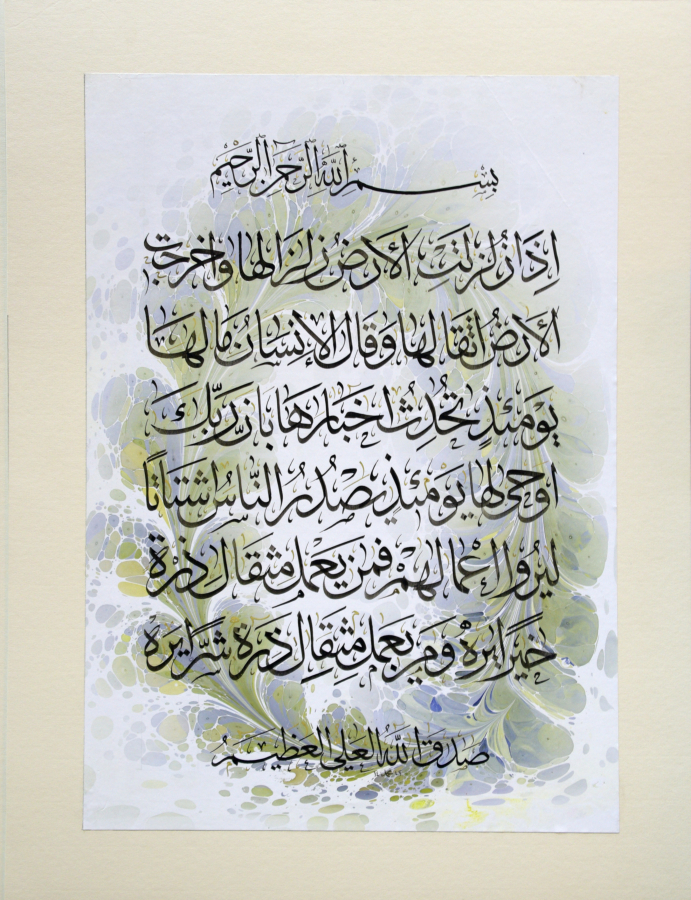 بسم الله الرحمن الرحيم
اذا زلزلت الأرض زلزالها واخرجت
الأرض اثقالها وقال الإنسان مالها
يومئذ تحدث اخبارها بان ربك
اوحى لها يومئذ يصدر الناس اشتاتا
ليروا اعمالهم فمن يعمل مثقال ذرة
خيرا يره ومن يعمل مثقال ذرة شرا يره
صدق الله العلي العظيم